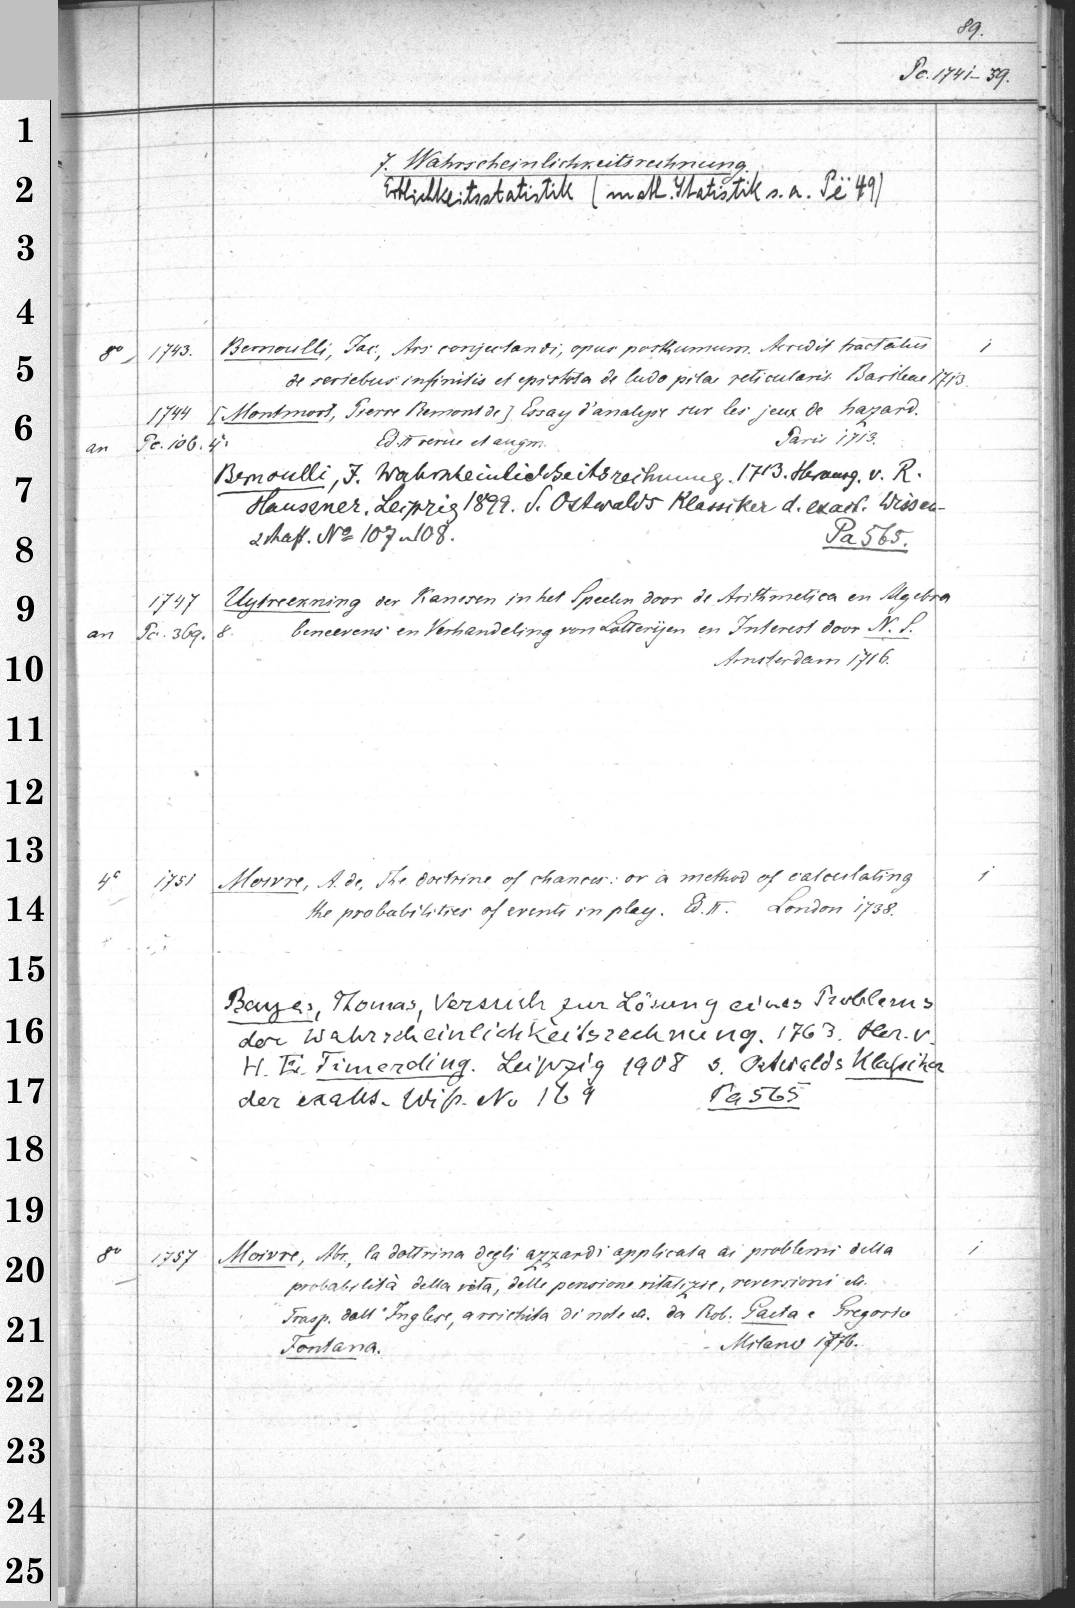 89.
Pc. 1741–59.
7. Wahrscheinlichkeitsrechnung.
(math. Statistik s. a. Pë 49)
8° 1743. Bernoulli, Jac., Ars conjectandi, opus posthumum. Accedit tractatus i
de seriebus infinitis et epistola de ludo pilae reticularis. Basileae 1713.
1744 [Montmort, Pierre Remont de] Essay d'analyse sur les jeux de hazard.
an Pc. 106. 4°. Ed. II revue et augm. Paris 1713.
Bernoulli, J. Wahrscheinlichkeitsrechnung. 1713. Herausg. v. R.
Haussner. Leipzig 1899. S. Ostwalds Klassiker d. exact. Wissen-
schaft. No 107 u 108. Pa 565.
1747 Uytreekning der Kanssen in het Speelen door de Arithmetica en Algebra
an Pc. 369. 8. beneevens en Verhandeling von Lotterijen en Interest door N. S.
Amsterdam 1716.
4° 1751 Moivre, A. de, The doctrine of chances: or a method of calculating i
the probabilities of events in play. Ed. II. London 1738.
Bayes, Thomas, Versuch zur Lösung eines Problems
der Wahrscheinlichkeitsrechnung. 1763. Her. v.
H. E. Timerding. Leipzig 1908 s. Ostwalds Klassiker
der exakt. Wiss. No 169 Pa 565
8° 1757 Moivre, Abr., la dottrina degli azzardi applicata ai problemi della i
probabilità della vita, delle pensione vitalizie, reversioni etc.
Trasp. dall' Inglese, arrichita di note etc. da Rob. Gaeta e Gregorio
Fontana. Milano 1776.
1
2
3
4
5
6
7
8
9
10
11
12
13
14
15
16
17
18
19
20
21
22
23
24
25